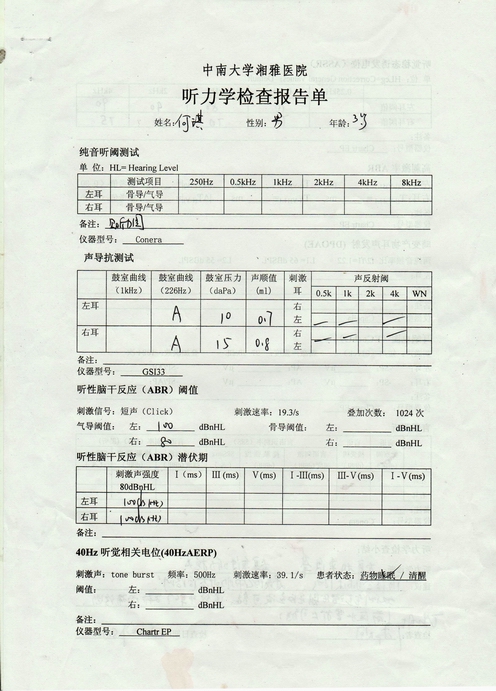 中南大学湘雅医院
听力学检查报告单
姓名: 何琪 性别: 男 年龄: 3岁
纯音听阈测试
单 位: HL= Hearing Level
测试项目 250Hz 0.5kHz 1kHz 2kHz 4kHz 8kHz
左耳 骨导/气导
右耳 骨导/气导
备注:
仪器型号: Conera
声导抗测试
鼓室曲线 鼓室曲线 鼓室压力 声顺值 刺激 声反射阈
(1kHz) (226Hz) (daPa) (ml) 耳 0.5k 1k 2k 4k WN
左耳 A 10 0.7 右
左
右耳 A 15 0.8 右
左
备注:
仪器型号: GSI33
听性脑干反应(ABR)阈值
刺激信号: 短声(Click) 刺激速率: 19.3/s 叠加次数: 1024 次
气导阈值: 左: 100 dBnHL 骨导阈值: 左: dBnHL
右: 80 dBnHL 右: dBnHL
听性脑干反应(ABR)潜伏期
刺激声强度 I (ms) III (ms) V (ms) I -III(ms) III- V (ms) I - V (ms)
80dBnHL
左耳
右耳
备注:
40Hz 听觉相关电位(40HzAERP)
刺激声: tone burst 频率: 500Hz 刺激速率: 39.1/s 患者状态: 药物睡眠 / 清醒
阈值: 左: dBnHL
右: dBnHL
备注:
仪器型号: Chartr EP